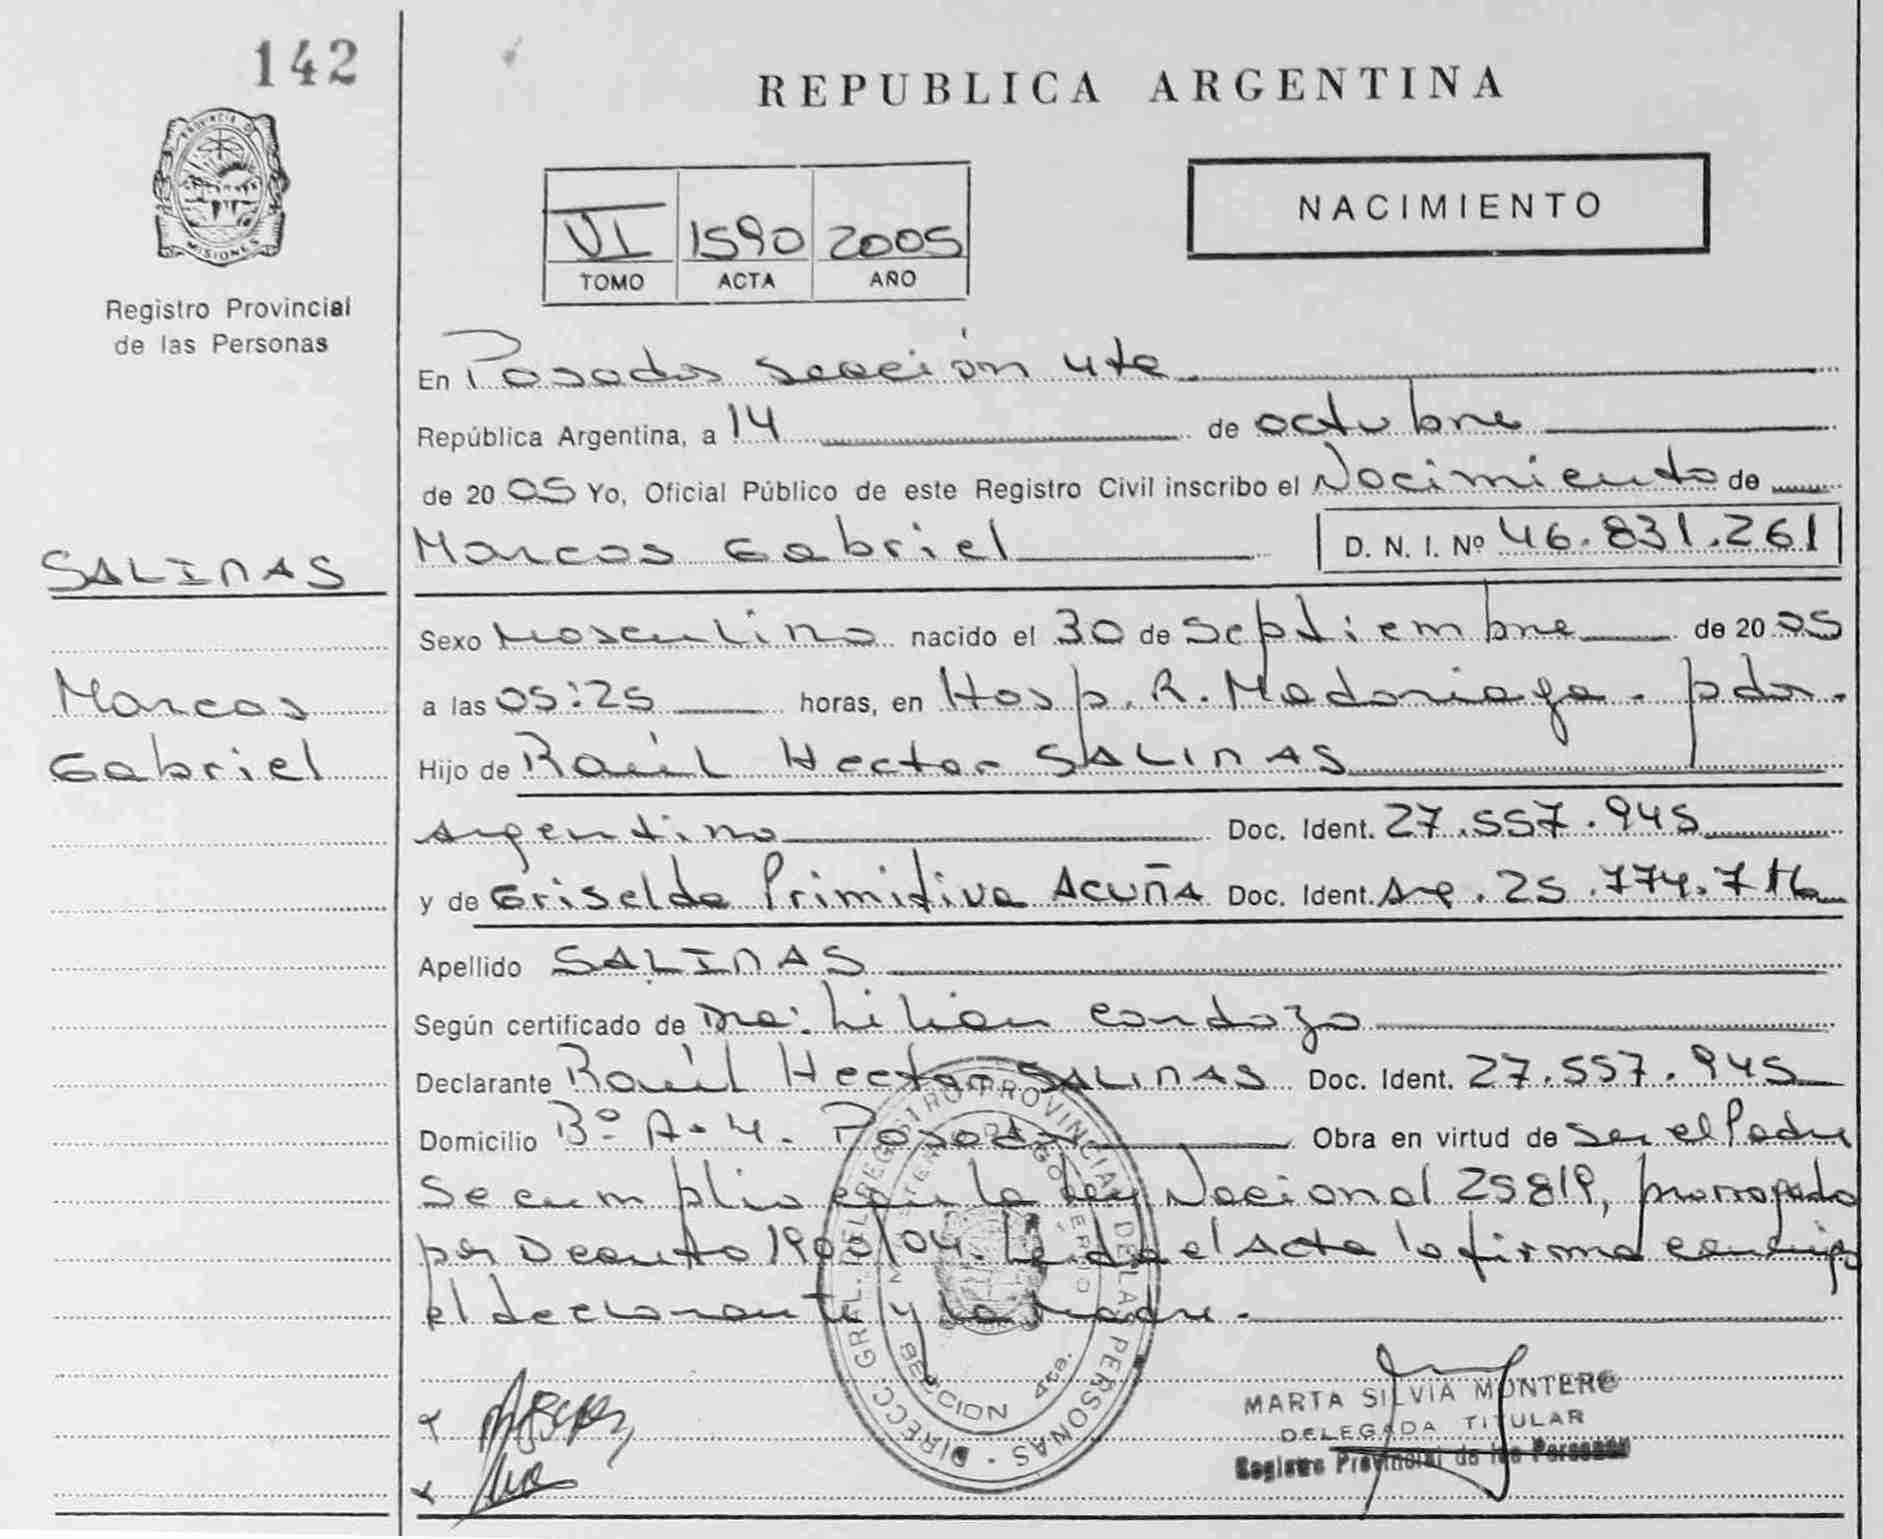 142
PROVINCIA DE
MISIONES
Registro Provincial
de las Personas
SALINAS
Marcos
Gabriel
REPUBLICA ARGENTINA
VI 1590 2005
TOMO ACTA AÑO
NACIMIENTO
En Posadas sección 4ta
República Argentina, a 14 de octubre
de 2005 Yo, Oficial Público de este Registro Civil inscribo el Nacimiento de
Marcos Gabriel D. N. I. Nº 46.831.261
Sexo Masculino nacido el 30 de Septiembre de 2005
a las 05:25 horas, en Hosp. R. Madariaga - pdas.
Hijo de Raúl Hector SALINAS
argentino Doc. Ident. 27.557.945
y de Griselda Primitiva Acuña Doc. Ident. Arg. 25.774.716
Apellido SALINAS
Según certificado de Dra: Lilian Cardozo
Declarante Raúl Hector SALINAS Doc. Ident. 27.557.945
Domicilio Bº A-4. Posadas Obra en virtud de Ser el Padre
Se cumplio con la Ley Nacional 25819, prorrogada
por Decreto 1900/04. Leida el Acta la firma conmigo
el declarante y la madre.-
DIRECC. GRAL. DEL REGISTRO PROVINCIAL DE LAS PERSONAS
SECCION 4ta.
MARTA SILVIA MONTERO
DELEGADA TITULAR
Registro Provincial de las Personas